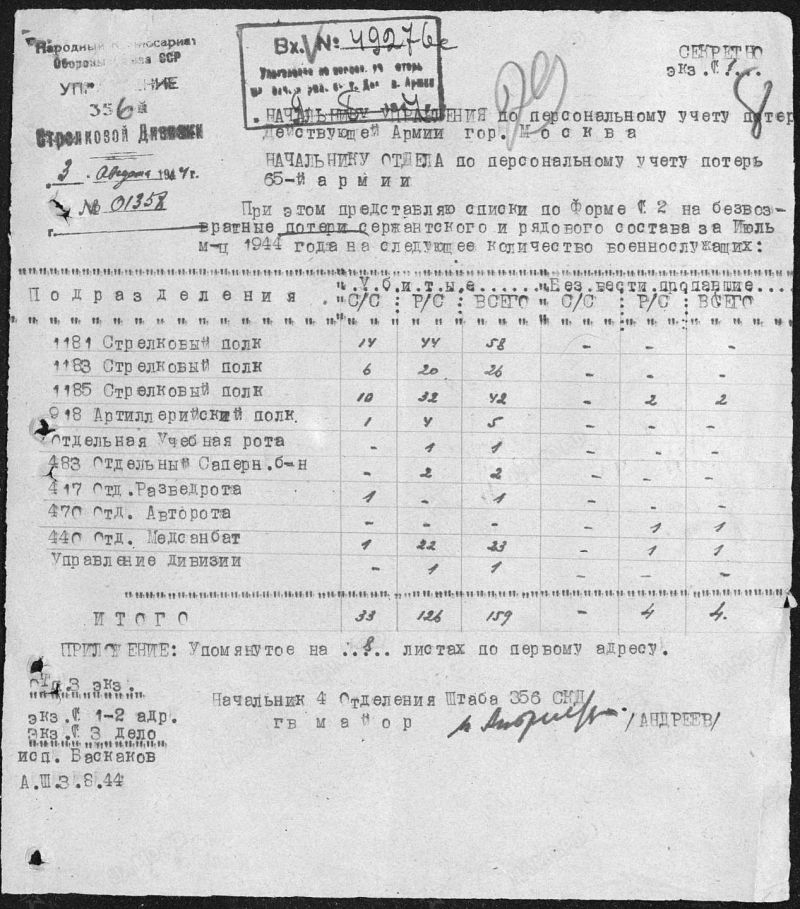 Народный Комиссариат
Обороны Союза ССР
УПРАВЛЕНИЕ
356й
Стрелковой Дивизии
3 Августа 1944г.
№ 01358
г.
Вх. № 49276с
СЕКРЕТНО
экз. № 1...
8
НАЧАЛЬНИКУ УПРАВЛЕНИЯ по персональному учету потер
Действующей Армии гор. Москва
НАЧАЛЬНИКУ ОТДЕЛА по персональному учету потерь
65-й армии
При этом представляю списки по Форме № 2 на безвоз-
вратные потери сержантского и рядового состава за Июль
м-ц 1944 года на следующее количество военнослужащих:
Подразделения Убитые Без вести пропавшие
С/С Р/С ВСЕГО С/С Р/С ВСЕГО
1181 Стрелковый полк 14 44 58 - - -
1183 Стрелковый полк 6 20 26 - - -
1185 Стрелковый полк 10 32 42 - 2 2
918 Артиллерийский полк 1 4 5 - - -
Отдельная Учебная рота - 1 1 - - -
483 Отдельный Саперн.б-н - 2 2 - - -
417 Отд.Разведрота 1 - 1 - - -
470 Отд. Авторота - - - - 1 1
440 Отд. Медсанбат 1 22 23 - 1 1
Управление Дивизии - 1 1 - - -
ИТОГО 33 126 159 - 4 4.
ПРИЛОЖЕНИЕ: Упомянутое на ..8.. листах по первому адресу.
Отп.3 экз.
экз.№ 1-2 адр.
экз.№ 3 Дело
исп. Баскаков
А.Ш.3.8.44
Начальник 4 Отделения Штаба 356 СКД
гв майор /АНДРЕЕВ/